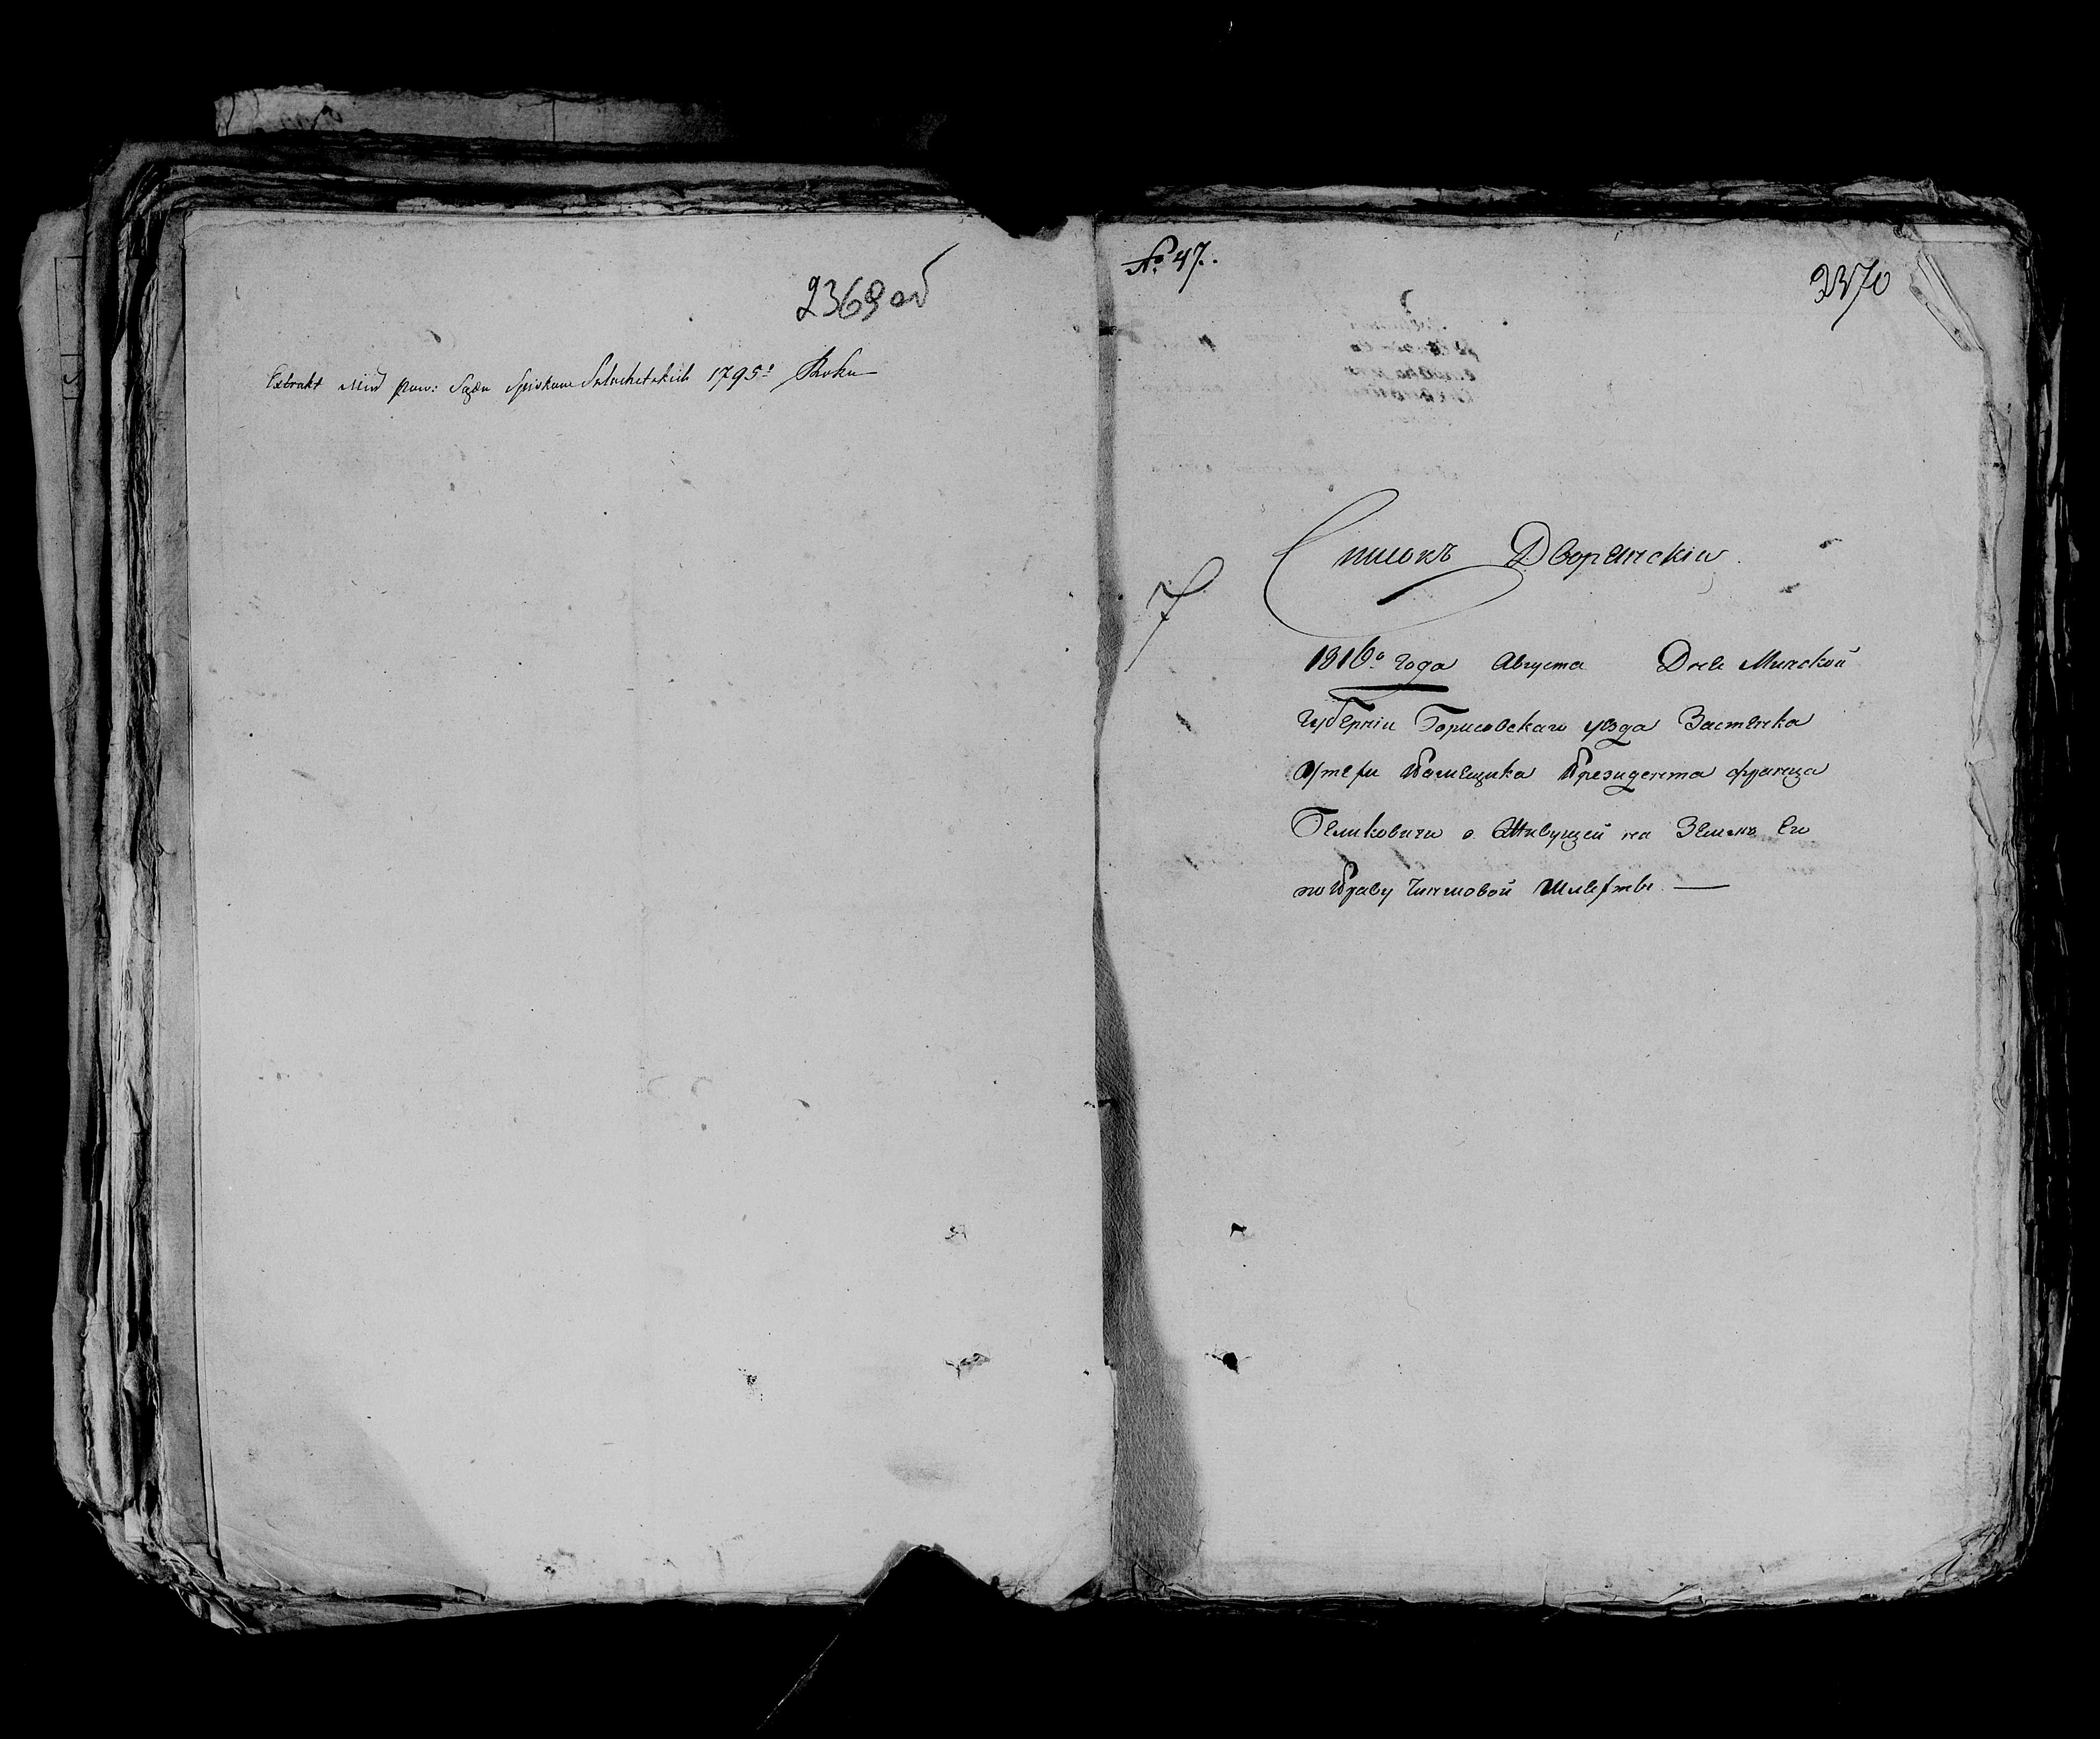 2369 об
Extrakt Miń pow: Sądu Spiskow Szlachetskich 1795: Roku
№ 47.
2370
7
Списокъ Дворянскiи
1816го года Августа Дня Минской
Губернiи Борисовскаго уѣзда Застенка
Помещика Президента Франца
Беликовича о Живущей на Земле Его
по Праву Чиншовой Шляхтѣ —